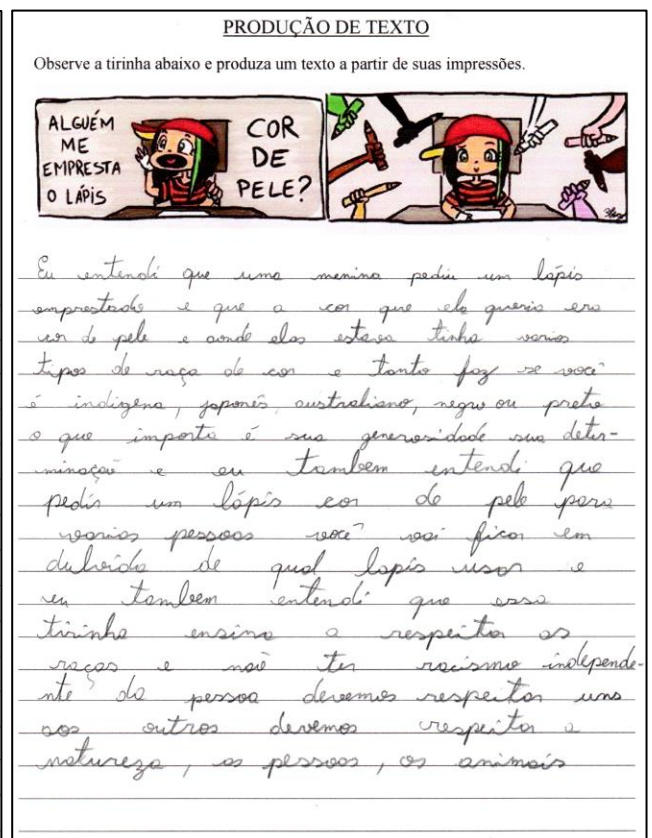 PRODUÇÃO DE TEXTO
Observe a tirinha abaixo e produza um texto a partir de suas impressões.
ALGUÉM
ME
EMPRESTA
O LÁPIS
COR
DE
PELE?
Eu entendi que uma menina pediu um lápis
emprestado e que a cor que ela queria era
cor de pele e aonde elas estava tinha varios
tipos de raça de cor e tanto faz se você
é indigena, japonês, australiano, negro ou preto
o que importa é sua generosidade sua deter-
minaçaõ e eu tambem entendi que
pedir um lápis cor de pele para
varias pessoas você vai ficar em
dulvida de qual lapis usar e
eu tambem entendi que essa
tirinha ensina a respeitar as
raças e naõ ter racismo independe-
nte da pessoa devemos respeitar uns
aos outros devemos respeitar a
natureza, as pessoas, os animais